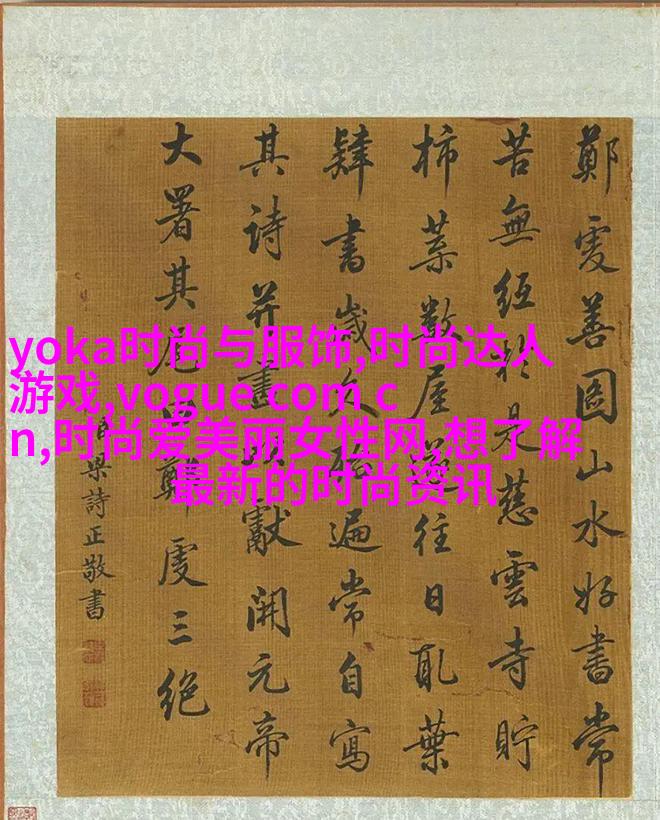 鄭虔善圖山水好書常
苦無紙於是慈雲寺貯
柿葉數屋遂往日取葉
肄書歲久殆遍常自寫
其詩并畫以獻開元帝
大署其尾曰鄭虔三絶
臣梁詩正敬書
yoka时尚与服饰,时尚达人
游戏,vogue com c
n,时尚爱美丽女性网,想了解
最新的时尚资讯